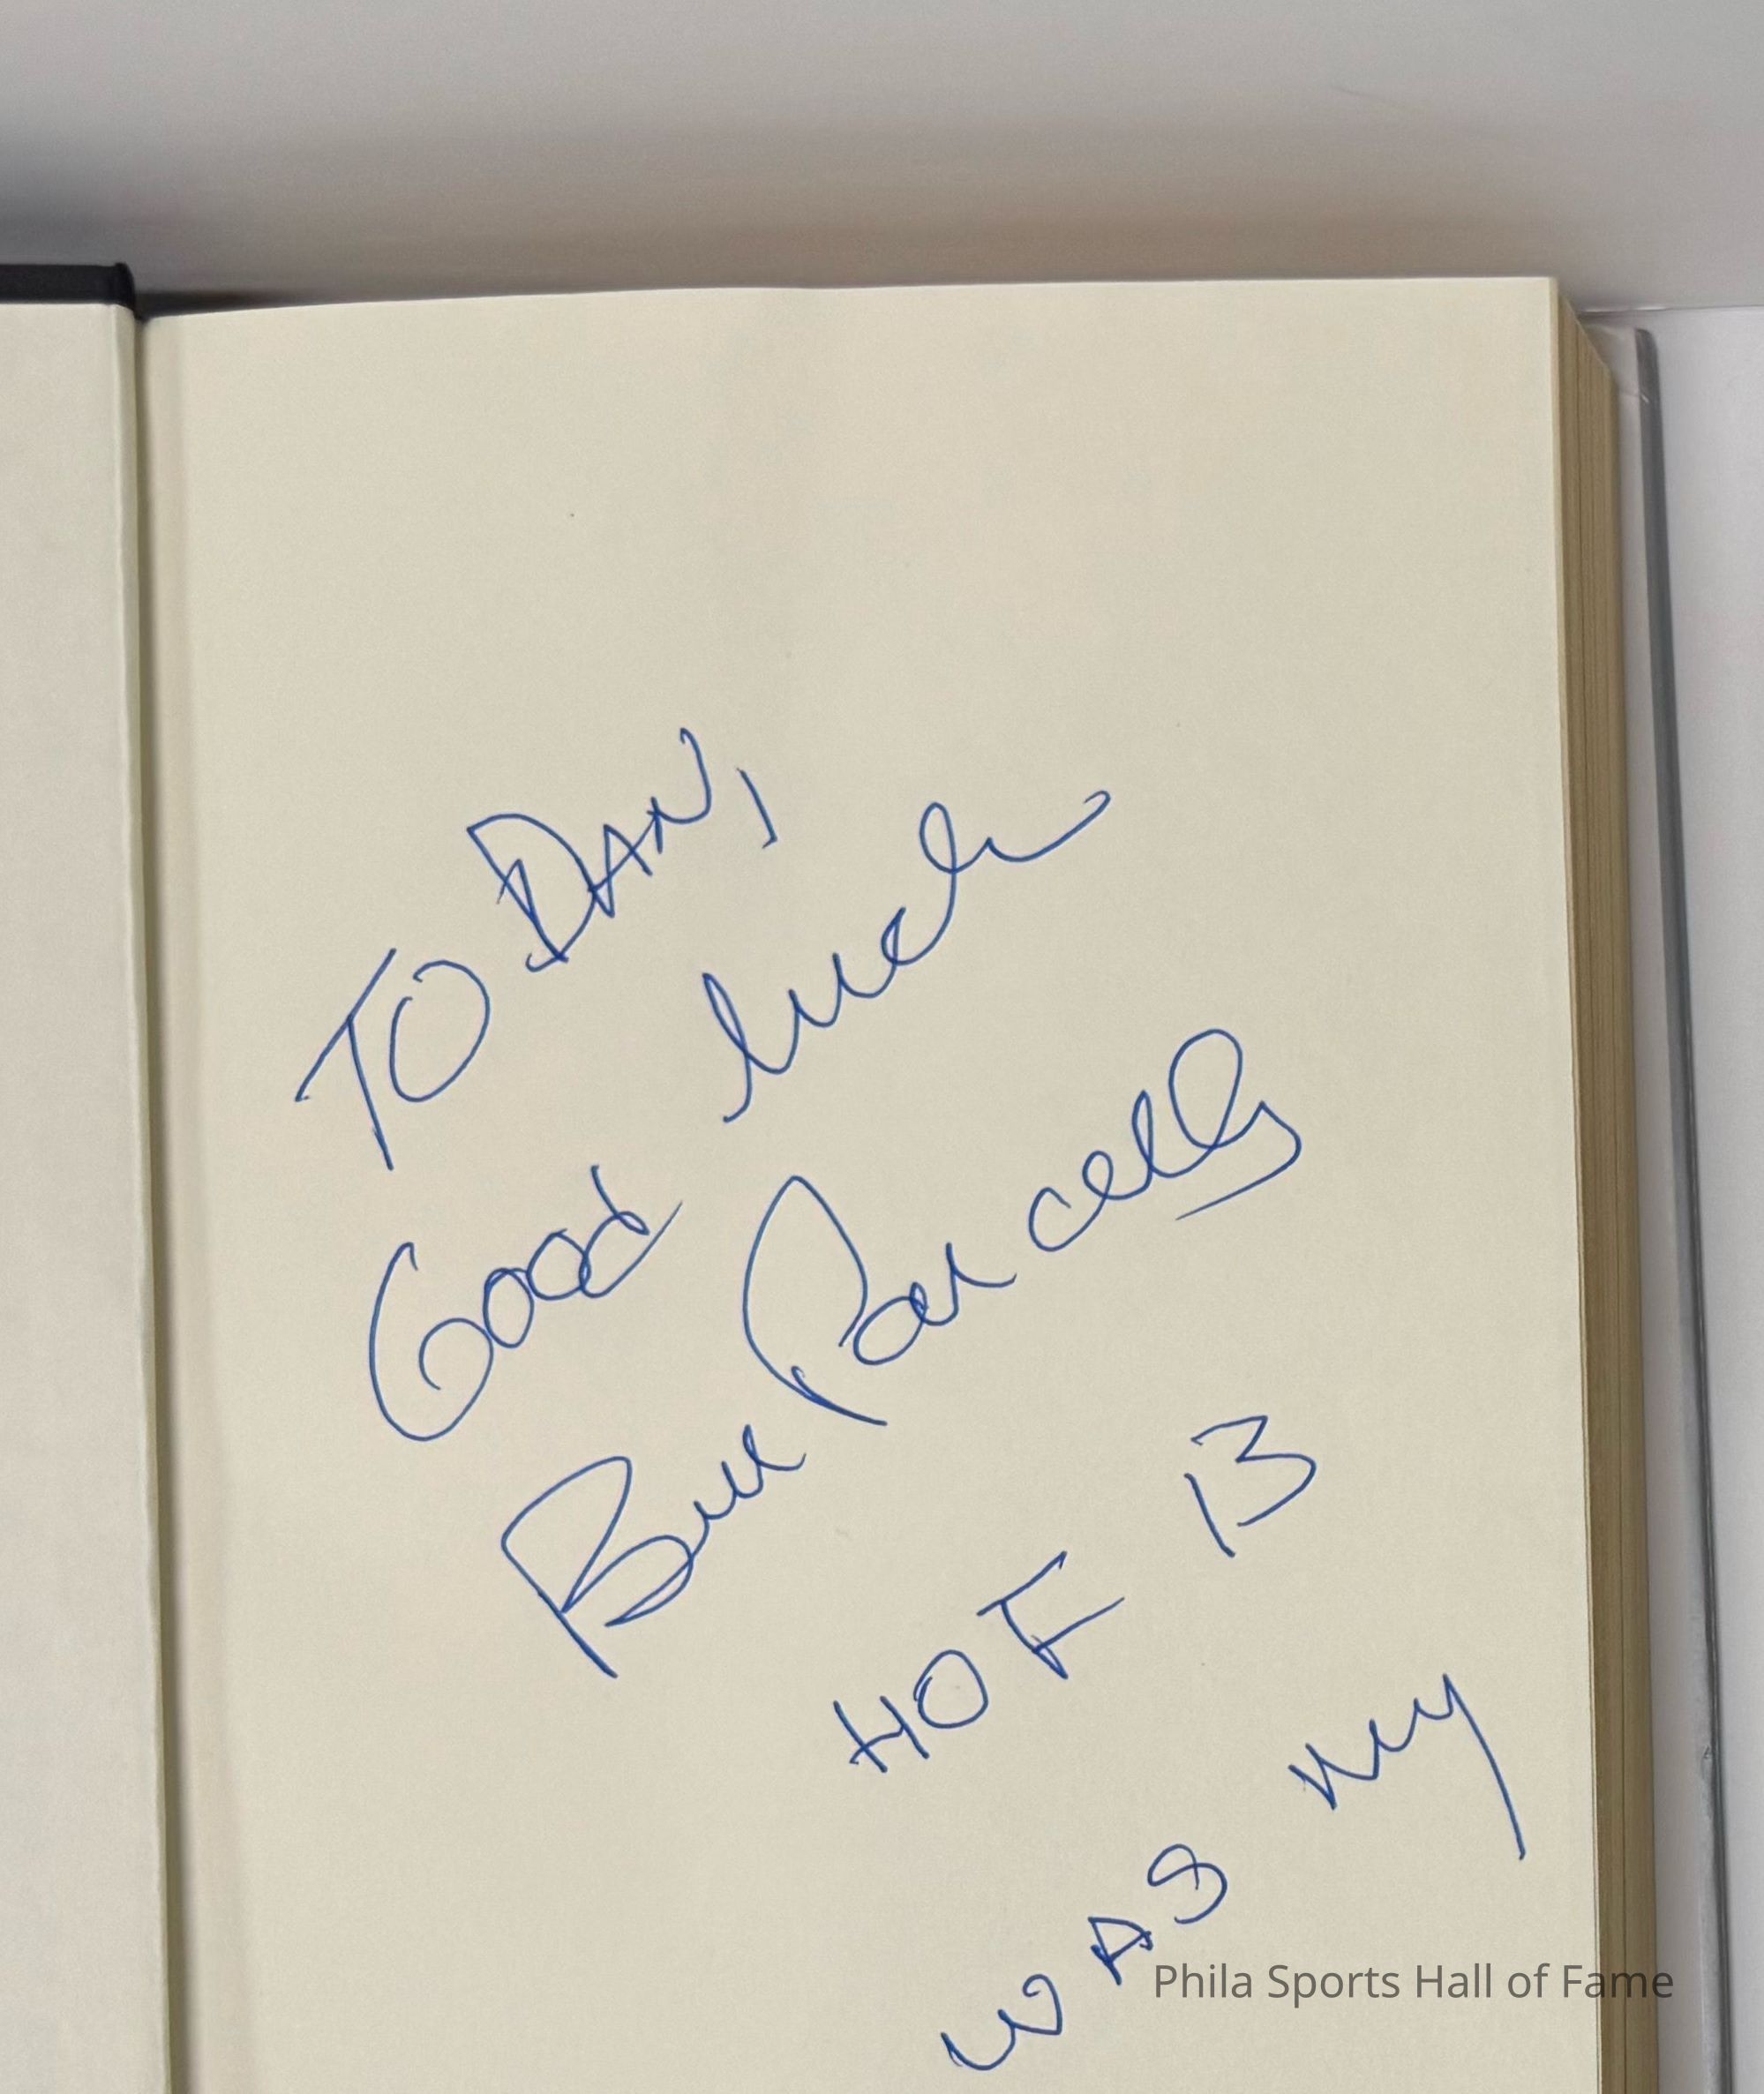 TO DAN,
Good luck
Bill Parcells
HOF 13
WAS my
Phila Sports Hall of Fame